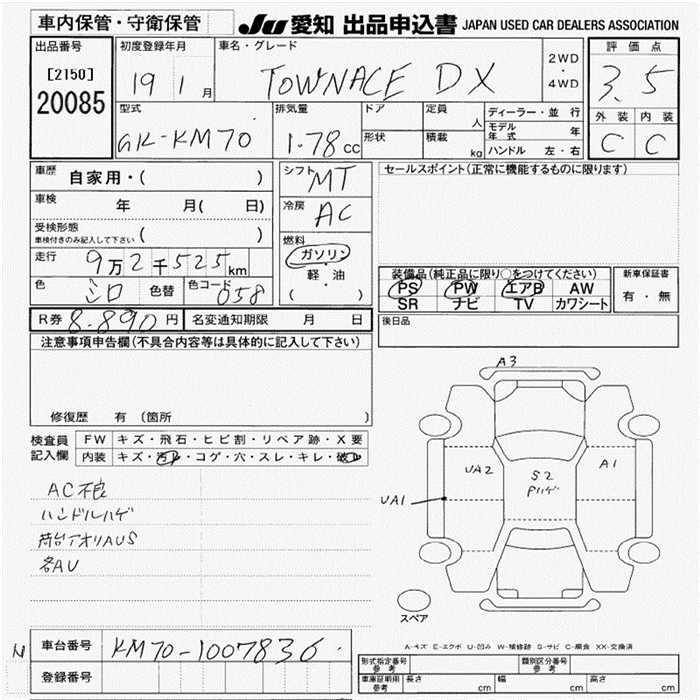 車内保管・守衛保管
JU 愛知 出品申込書 JAPAN USED CAR DEALERS ASSOCIATION
出品番号
[2150]
20085
初度登録年月
19 1 月
車名・グレード
TOWNACE DX
2WD
・
4WD
評価点
3.5
外装 内装
C C
型式
GK-KM70
排気量
1.78 cc
ドア
形状
定員
人
積載
kg
ディーラー・並行
モデル年式 年
ハンドル 左・右
車歴
自家用・( )
車検
年 月( 日)
受検形態
車検付きのみ記入して下さい ( )
走行
9万2千525km
色
シロ
色替
色コード
058
シフト
MT
冷房
AC
燃料
ガソリン
・
軽・油
( )
セールスポイント(正常に機能するものに限ります)
装備品(純正品に限り○をつけてください)
PS PW エアB AW
SR ナビ TV カワシート
新車保証書
有・無
後日品
R券 8.890 円 名変通知期限 月 日
注意事項申告欄(不具合内容等は具体的に記入して下さい)
修復歴 有 (箇所 )
検査員
記入欄
FW キズ・飛石・ヒビ割・リペア跡・X要
内装 キズ・汚れ・コゲ・穴・スレ・キレ・破れ
AC不良
ハンドルハゲ
荷台アオリAUS
各AU
A3
UA2
S2
Pハゲ
A1
UA1
スペア
A-キズ E-エクボ U-凹み W-補修跡 S-サビ C-腐食 XX-交換済
N
車台番号
KM70-1007836
登録番号
型式指定番号
参考
類別区分番号
参考
車庫証明用
参考
長さ cm 幅 cm 高さ cm